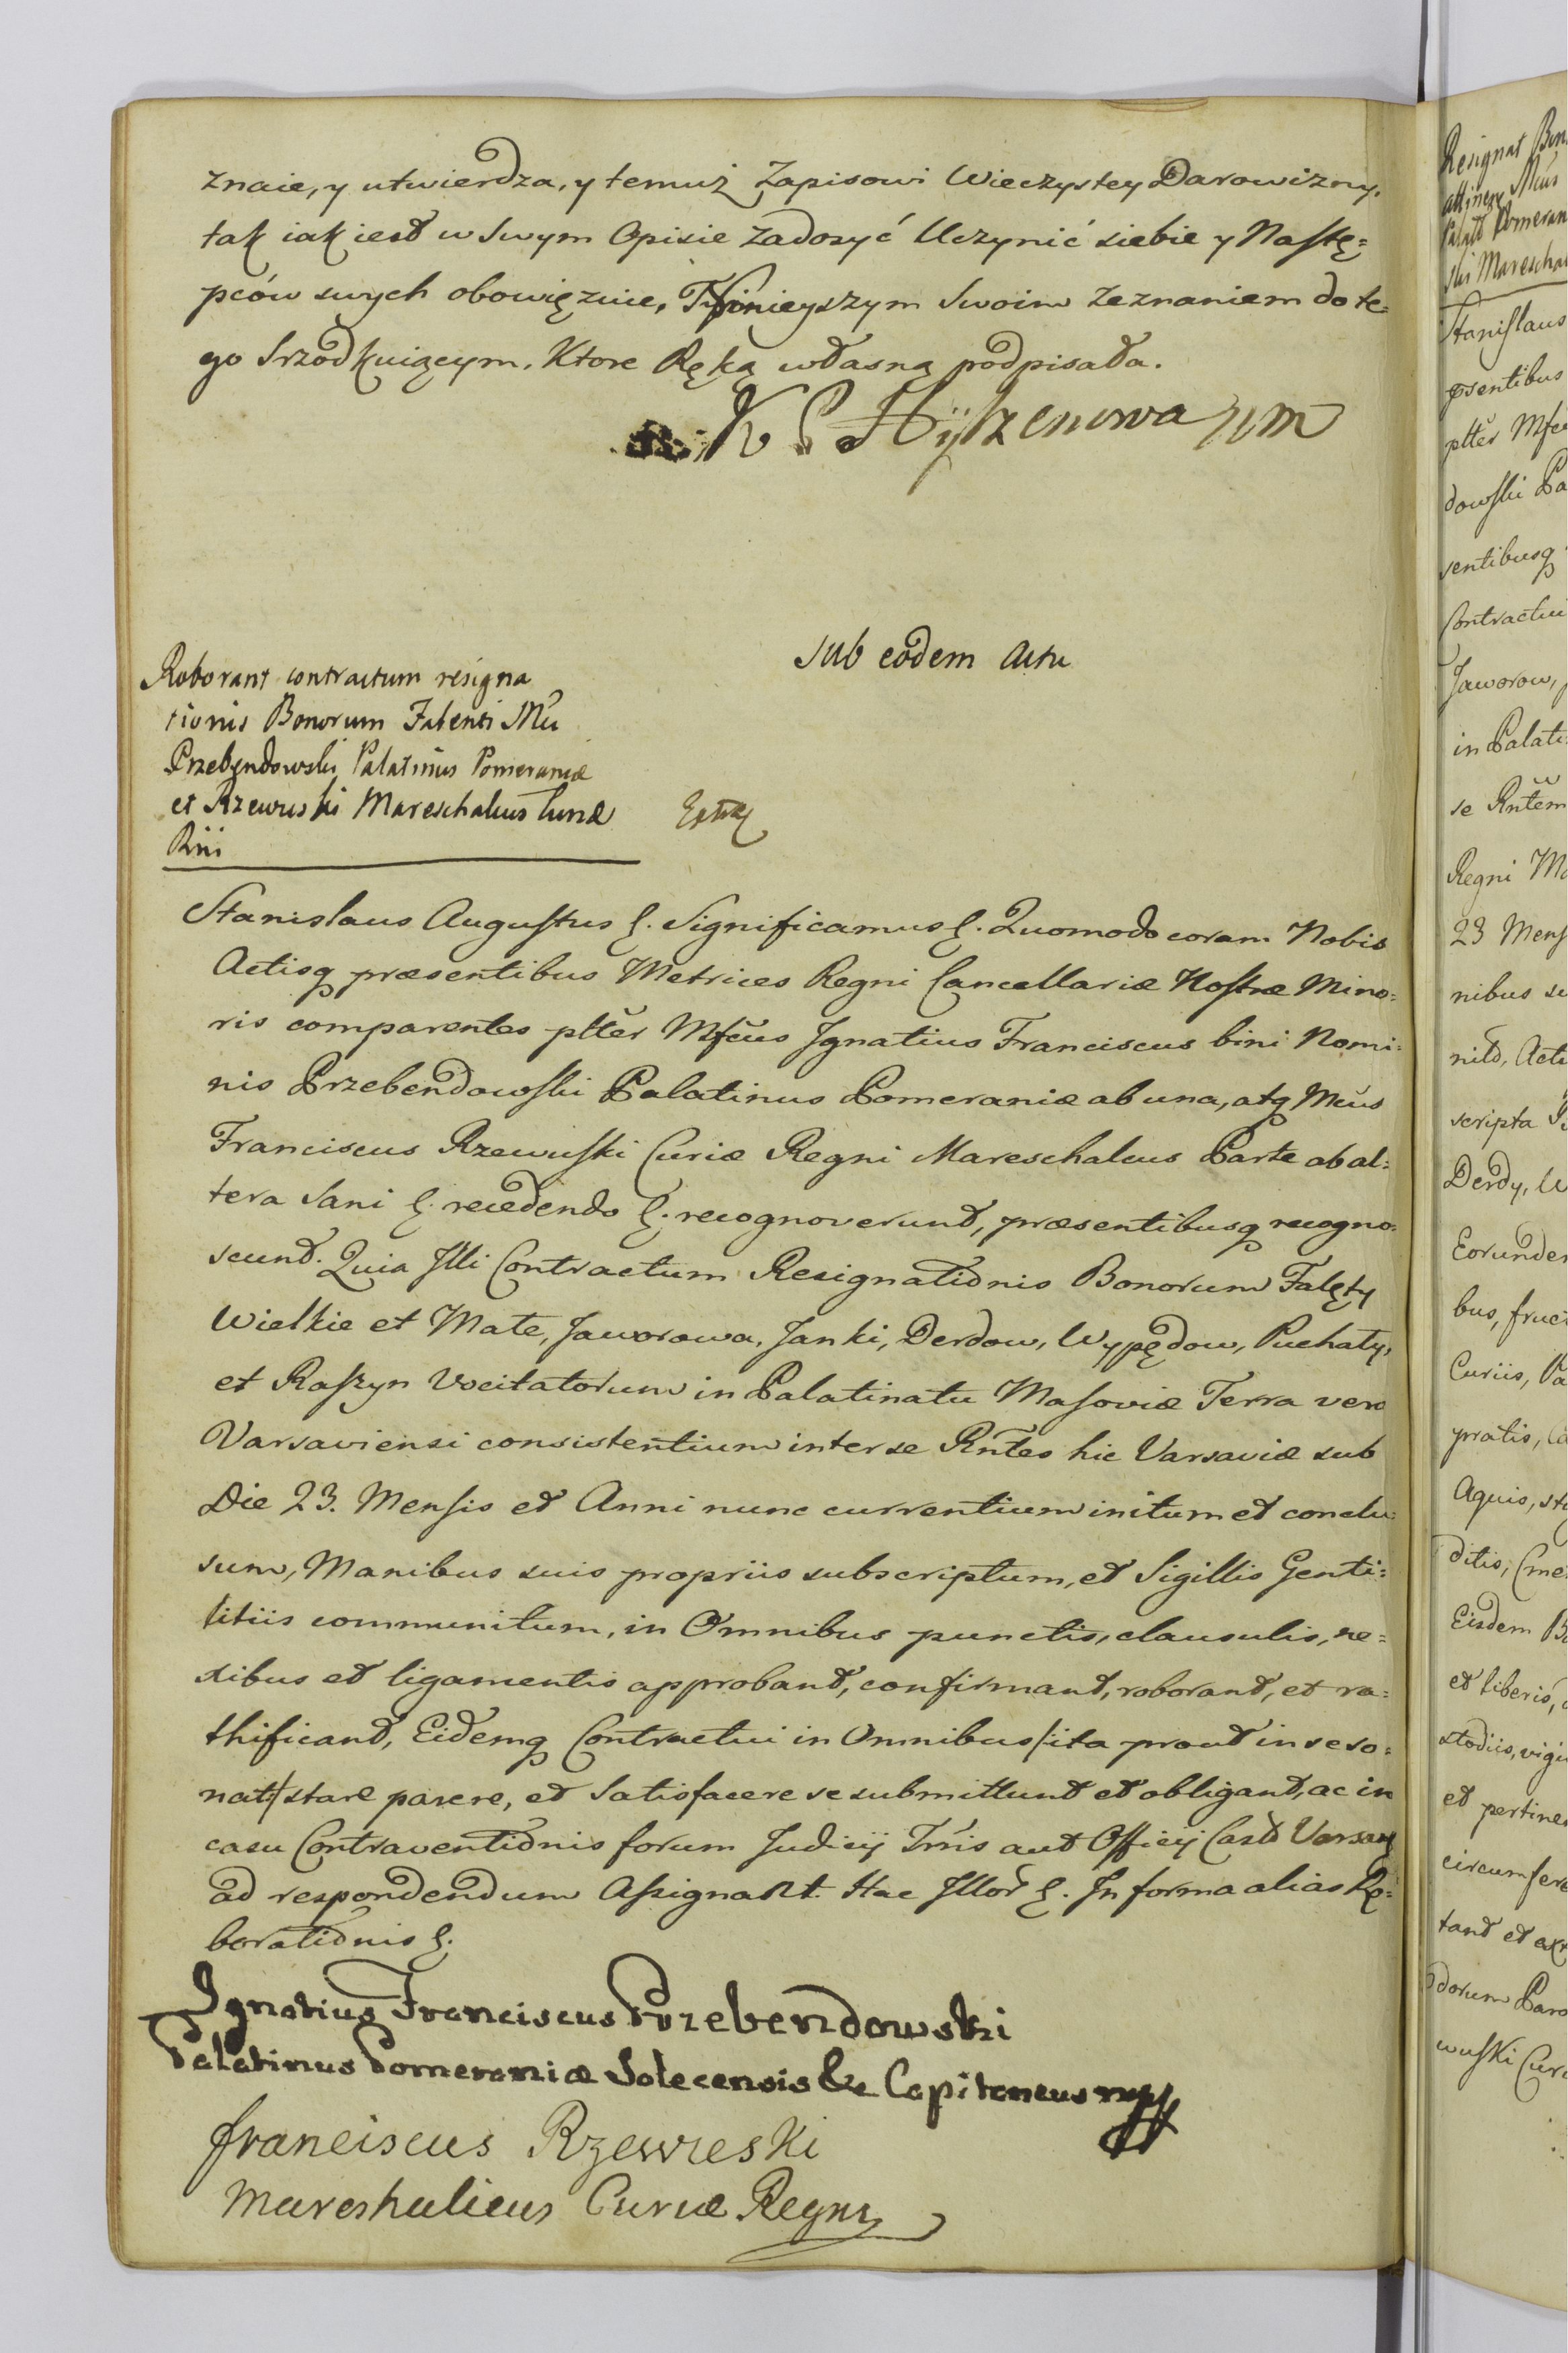 znaie, y utwierdza, y temuż Zapisowi Wieczystey Darowizny,
tak iak iest w Swym Opisie Zadosyć Uczynić siebie y Nastę=
pców swych obowięzuie, Ninieyszym Swoim Zeznaniem do te=
go Srzodkuiącym. Ktore Ręką własną podpisała.
K P Hylzenowa
Sub eodem Actu
Roborant contractum resigna
tionis Bonorum Falenti Mci
Przebendowski Palatinus Pomeraniæ
et Rzewuski Mareschalcus Curiæ
Rni
Stanislaus Augustus &. Significamus &. Quomodo coram Nobis
Actisq præsentibus Metrices Regni Cancellariæ Nostræ Mino=
ris comparentes plter Mfcus Ignatius Franciscus bini Nomi=
nis Przebendowski Palatinus Pomeraniæ ab una, atq Mcus
Franciscus Rzewuski Curiæ Regni Mareschalcus Parte ab al=
tera Sani &. recedendo &. recognoverunt, præsentibusq recogno=
scunt. Quia Illi Contractum Resignationis Bonorum Falęty
Wielkie et Małe, Jaworowa, Janki, Derdow, Wypędow, Puchały,
et Raszyn Vocitatorum in Palatinatu Masoviæ Terra vero
Varsaviensi consistentium inter se Rntes hic Varsaviæ sub
Die 23. Mensis et Anni nunc currentium initum et conclu=
sum, Manibus suis propriis subscriptum, et Sigillis Genti=
litiis communitum, in Omnibus punctis, clausulis, ne=
xibus et ligamentis approbant, confirmant, roborant, et ra=
thificant, Eidemq Contractui in Omnibus /ita prout in se so=
nat/ stare parere, et Satisfacere se submittunt et obligant, ac in
casu Contraventionis forum Judicij Trris aut Officij Castr Varsav
ad respondendum Assignant. Hac Illor &. In forma alias Ro=
borationis &.
Ignatius Franciscus Przebendowski
Palatinus Pomeraniæ Solecensis &c Capitaneus mpp
Franciscus Rzewuski
Mareshalicus Curiæ Regni
Resignat Bon
attinen Mcus
Palat Pomeran
ski Mareschal
Stanislaus
psentibus
plter Mfcu
dowski Pa
sentibusq
Contractu
Jaworow,
in Palati
se Rntem
Regni Ma
23 Mens
nibus su
nito, Acti
scripta
Derdy, W
Eorunden
bus, fruct
Curiis, Pa
pratis, Ca
Aquis, sta
ditis, Cme
Eisdem Bo
et liberis,
stodiis, vigi
et pertinen
circumfere
tant et ext
dorum Paro
wuski Curi